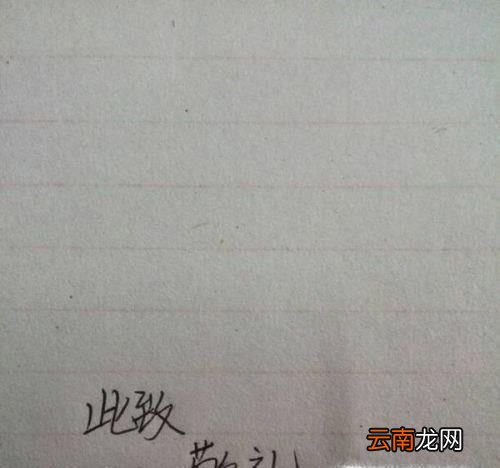 此致
敬礼
云南龙网